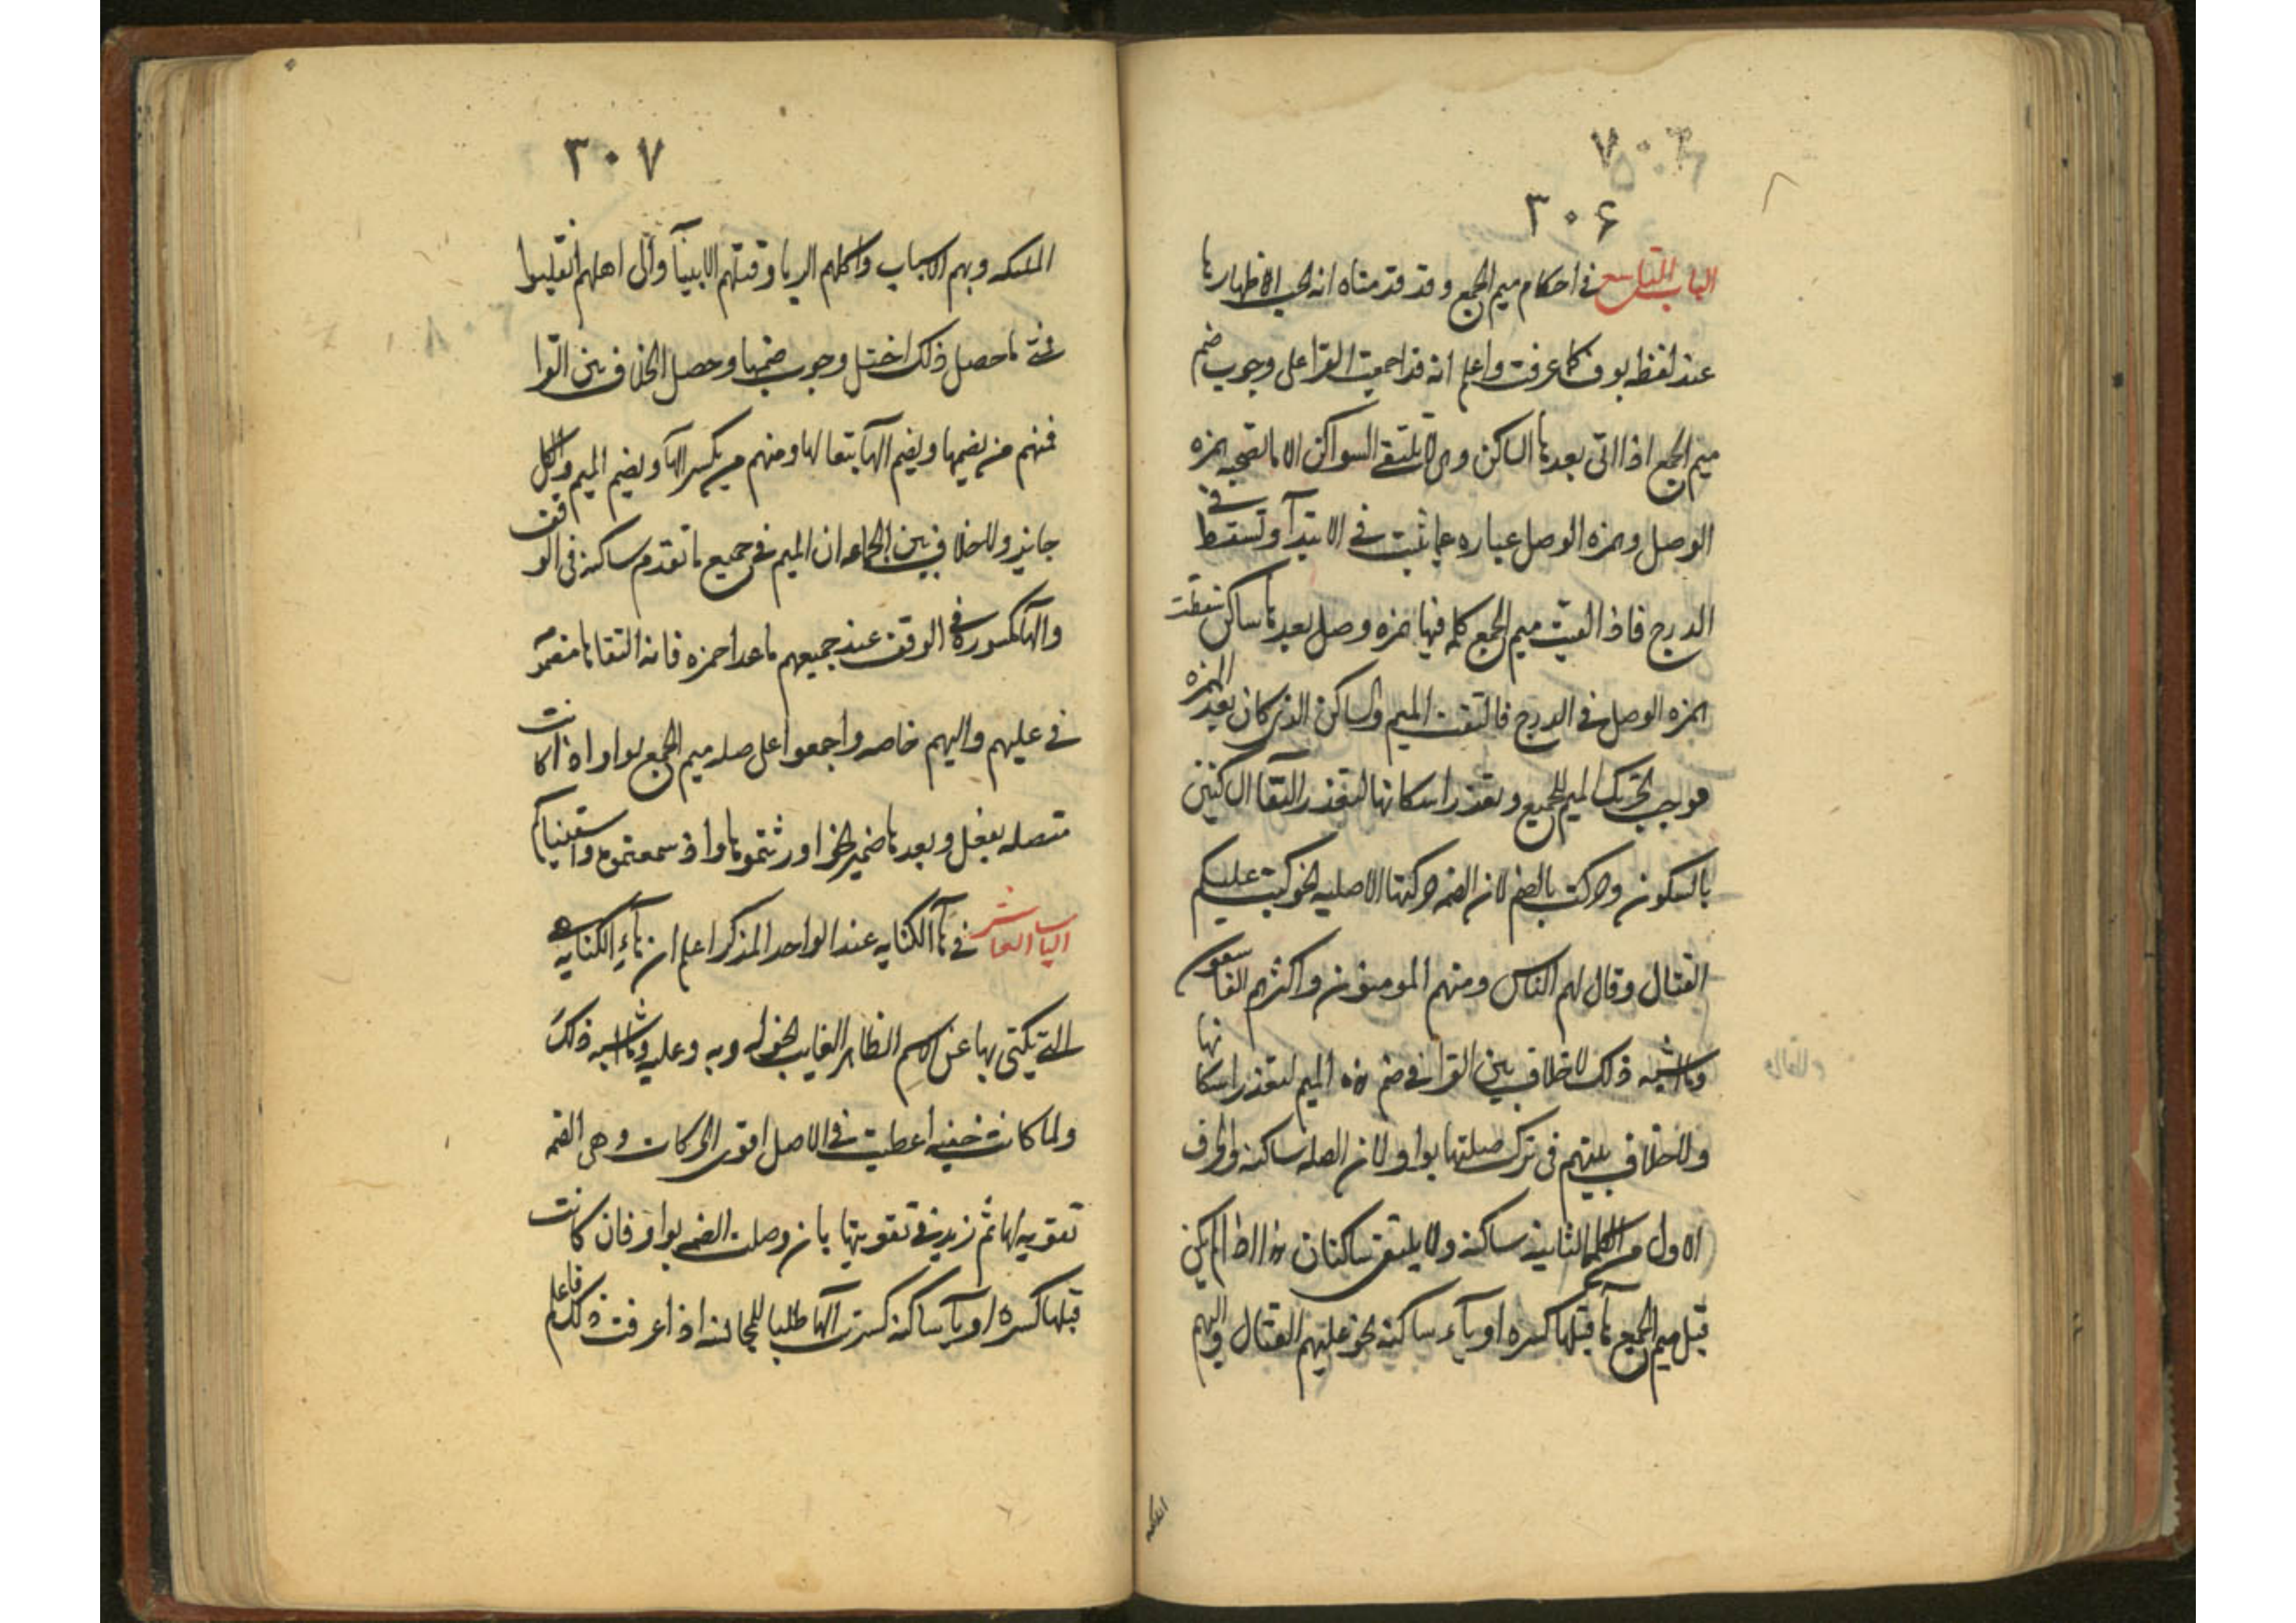 ٣٠۶
الباب التاسع في احكام ميم الجمع وقد قدمناه انه يجب الاظهار بها
عند لفظه بوف كما عرفت واعلم انه قد اجمعت القرا على وجوب ضم
ميم الجمع اذا اتى بعدها الساكن وهي لا تلتقي السواكن الا بالصحبه همزه
الوصل وهمزه الوصل عباره عما تثبت في الابتدآ وتسقط في
الدرج فاذا لقيت ميم الجمع كلمه فيها همزه وصل بعدها ساكن سقطت
همزه الوصل في الدرج فالتقت الميم والساكن الذي كان بعد الهمزه
فوجب تحريك الميم للجميع وتعذر اسكانها لتعذر التقآ الساكنين
بالسكون وحركت بالضم لان الضمه حركتها الاصليه نحو كتب عليكم
القتال وقال لهم الناس ومنهم المومنون واكثرهم الفاسقون
وما اشبه ذلك لا خلاف بين القرا في ضم هذه الميم لتعذر اسكانها
ولا خلاف بينهم في ترك صلتها بواو لان الصله ساكنه والحرف
الاول من الكلمه الثانيه ساكنه ولا يلتقى ساكنان هذا اذا لم يكن
قبل ميم الجمع هآ قبلها كسره او يآء ساكنه نحو عليهم القتال واليهم
٣٠٧
الملئكه وبهم الاسباب واكلهم الربا وقتلهم الانبيآ والى اهلهم انقلبوا
فمتى ما حصل ذلك اختل وجوب ضمها وحصل الخلاف بين القرا
فمنهم من يضمها ويضم الهآ تبعا لها ومنهم من يكسر الهآ ويضم الميم والكل
جايز ولا خلاف بين الجماعه ان الميم في جميع ما تقدم ساكنه في الوقف
والهآ مكسوره في الوقف عند جميعهم ما عدا حمزه فانه
في عليهم واليهم خاصه واجمعوا على صله ميم الجمع بواو اذا كانت
متصله بفعل وبعدها ضمير نحو اورثتموها واذ سمعتموه
الباب العاشر في هآ الكنايه عند الواحد المذكر اعلم ان هآء الكنايه هي
التي يكنى بها عن الاسم الظاهر الغايب نحو له وبه وعليه وما اشبه ذلك
ولما كانت خفيه اعطيت في الاصل اقوى الحركات وهى الضمه
تقويه لها ثم زيد في تقويتها بان وصلت الضمه بواو فان كانت
قبلها كسره او يآ ساكنه كسرت الهآ طلبا للمجانسه اذا عرفت ذلك فاعلم